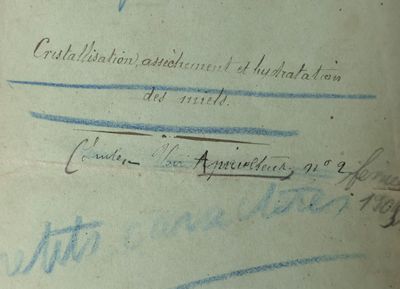 Cristallisation, assèchement et hydratation
des miels.
Voir Apiculteur, n° 2
petits caractères